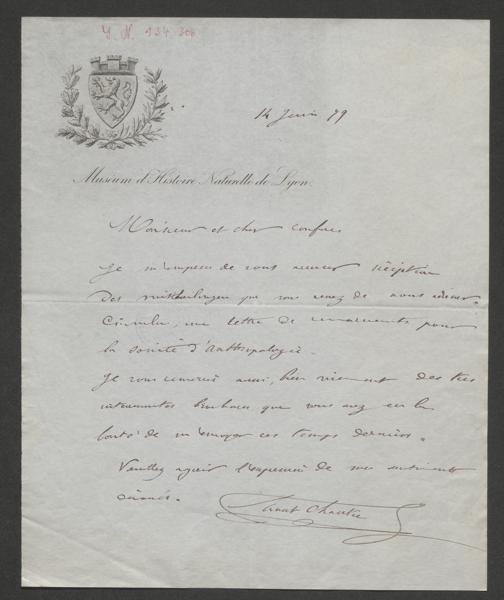 I. N. 134.306
14 Juin 79
Muséum d'Histoire Naturelle de Lyon.
Monsieur et cher confrère
Je m'empresse de vous accuser réception
des Mittheilungen que vous venez de nous adresser.
Ci-inclus, une lettre de remerciements pour
la société d'Anthropologie.
Je vous remercie aussi, bien vivement des très
intéressantes brochures que vous avez eu la
bonté de m'envoyer ces temps derniers.
Veuillez agréer l'expression de mes sentiments
dévoués.
Ernest Chantre